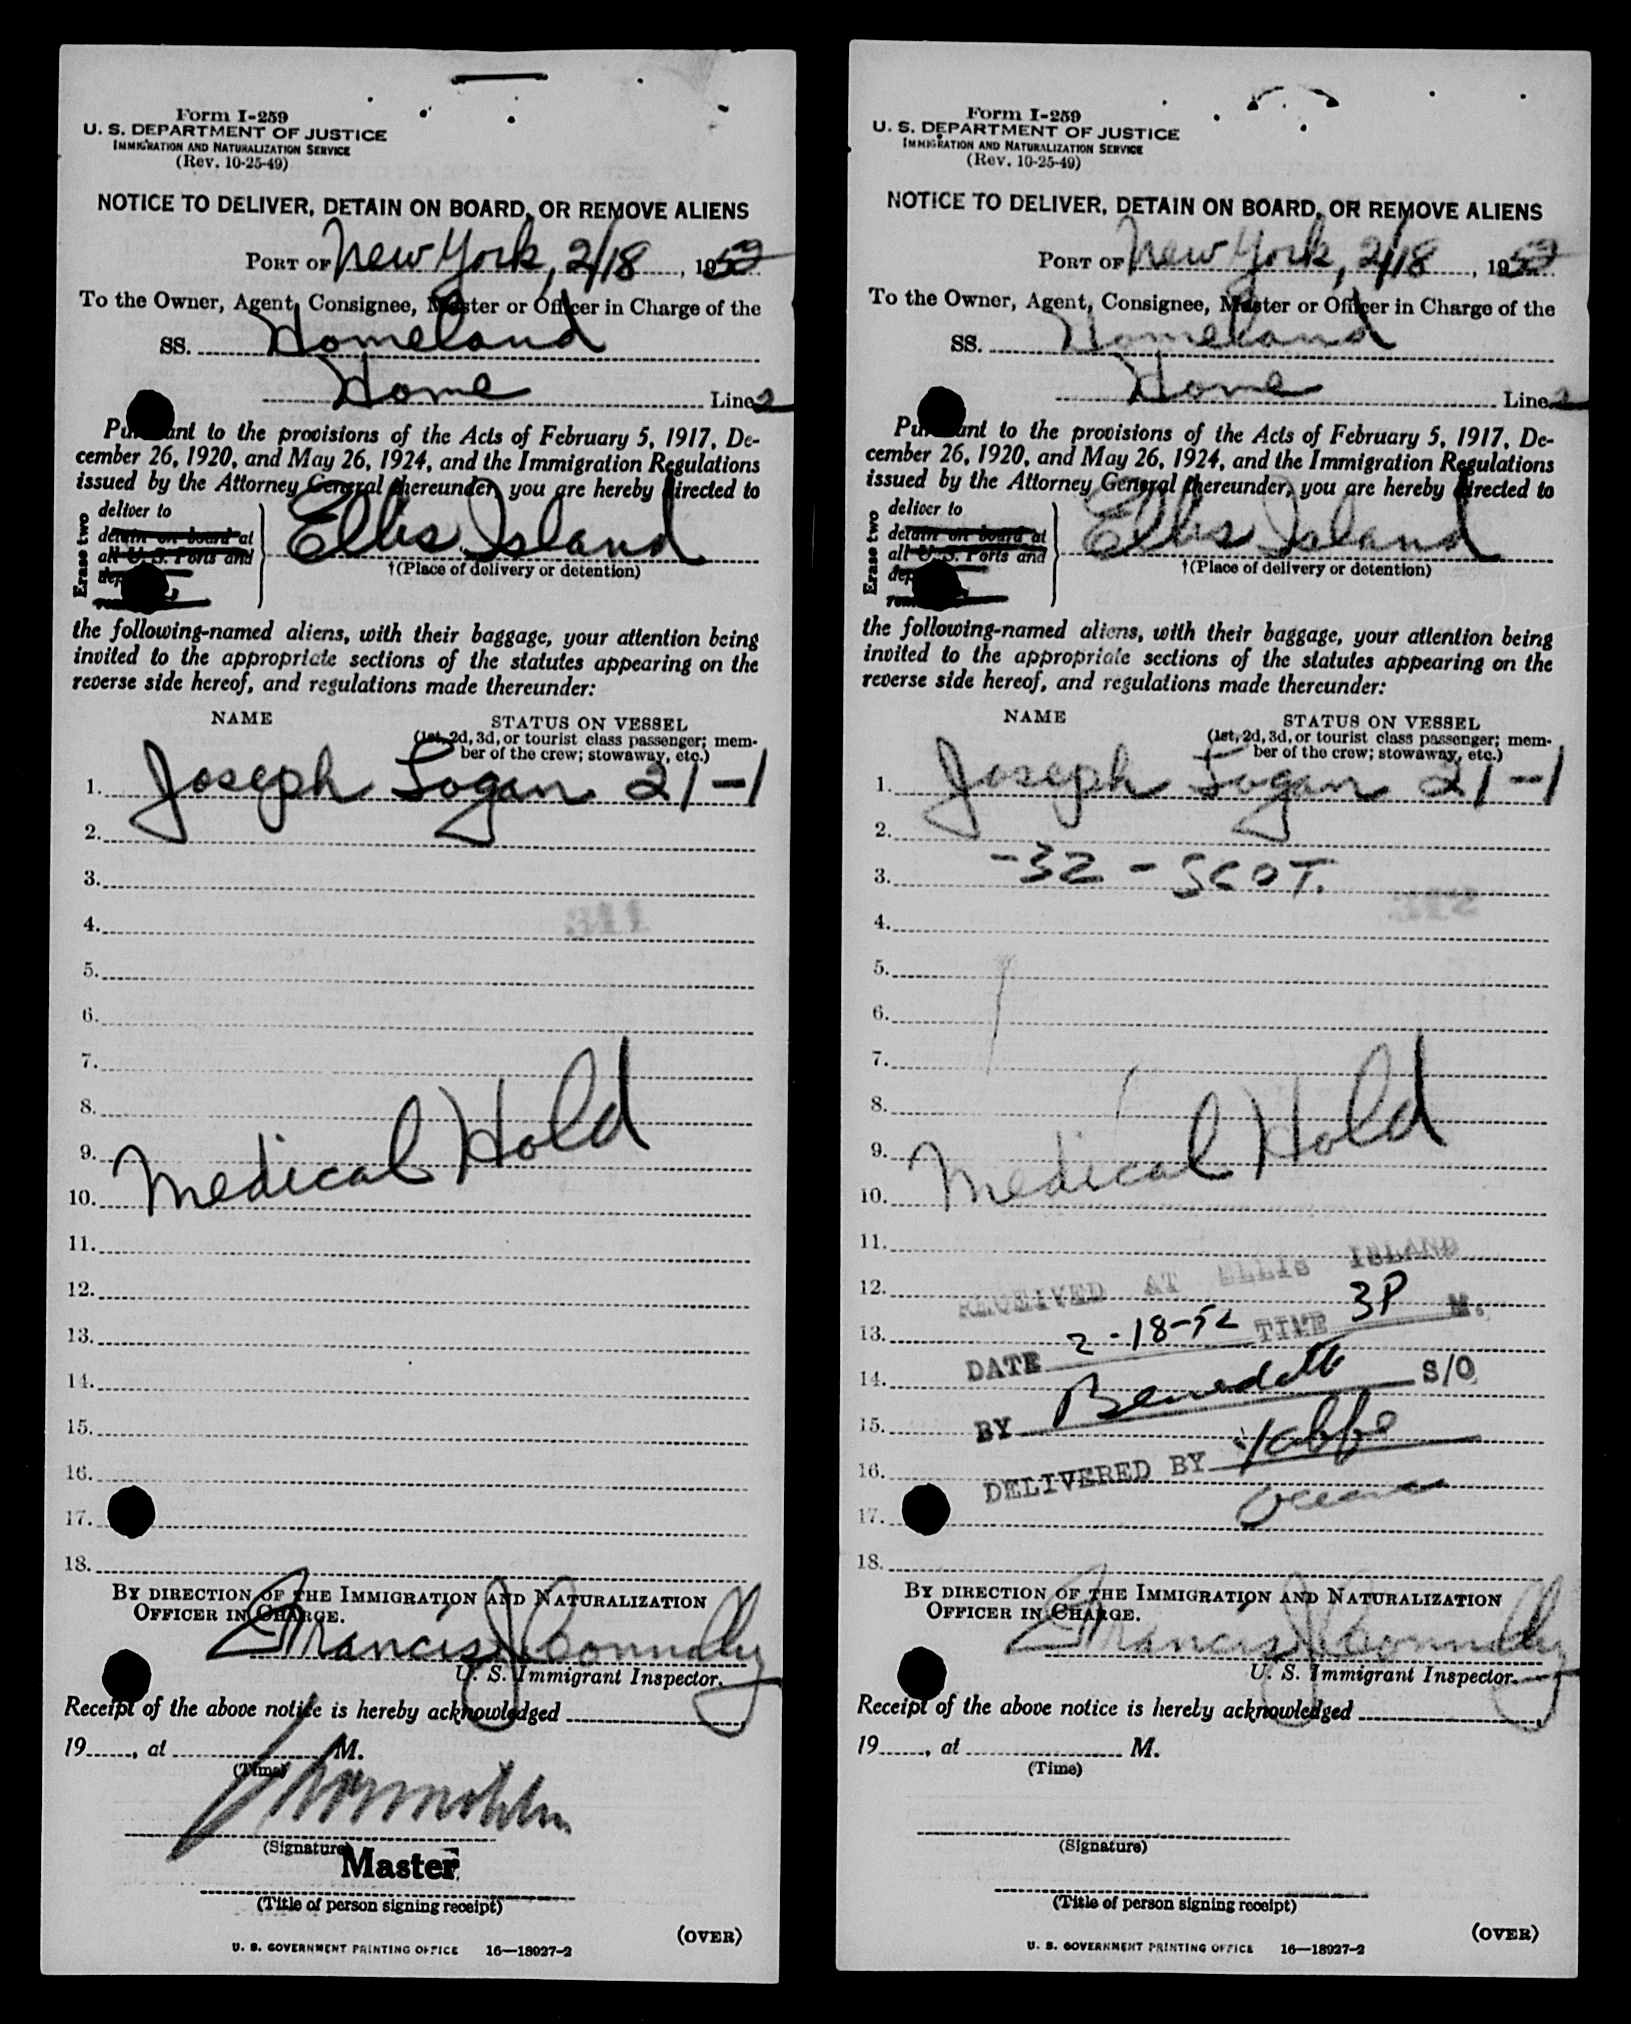 Form I-259
U. S. DEPARTMENT OF JUSTICE
IMMIGRATION AND NATURALIZATION SERVICE
(Rev. 10-25-49)
NOTICE TO DELIVER, DETAIN ON BOARD, OR REMOVE ALIENS
PORT OF New York, 2/18, 1952
To the Owner, Agent, Consignee, Master or Officer in Charge of the
SS. Homeland
Home Lines
Pursuant to the provisions of the Acts of February 5, 1917, De-
cember 26, 1920, and May 26, 1924, and the Immigration Regulations
issued by the Attorney General thereunder, you are hereby directed to
Erase two
deliver to
detain on board at
all U. S. Ports and
Ellis Island
†(Place of delivery or detention)
the following-named aliens, with their baggage, your attention being
invited to the appropriate sections of the statutes appearing on the
reverse side hereof, and regulations made thereunder:
NAME STATUS ON VESSEL
(1st, 2d, 3d, or tourist class passenger; mem-
ber of the crew; stowaway, etc.)
1. Joseph Logan 21-1
2.
3.
4. 311
5.
6.
7.
8.
9. Medical Hold
10.
11.
12.
13.
14.
15.
16.
17.
18.
BY DIRECTION OF THE IMMIGRATION AND NATURALIZATION
OFFICER IN CHARGE.
Francis J Connolly
U. S. Immigrant Inspector.
Receipt of the above notice is hereby acknowledged
19, at M.
(Time)
(Signature)
Master
(Title of person signing receipt)
(OVER)
U. S. GOVERNMENT PRINTING OFFICE 16—18927-2
Form I-259
U. S. DEPARTMENT OF JUSTICE
IMMIGRATION AND NATURALIZATION SERVICE
(Rev. 10-25-49)
NOTICE TO DELIVER, DETAIN ON BOARD, OR REMOVE ALIENS
PORT OF New York, 2/18, 1952
To the Owner, Agent, Consignee, Master or Officer in Charge of the
SS. Homeland
Home Lines
Pursuant to the provisions of the Acts of February 5, 1917, De-
cember 26, 1920, and May 26, 1924, and the Immigration Regulations
issued by the Attorney General thereunder, you are hereby directed to
Erase two
deliver to
detain on board at
all U. S. Ports and
Ellis Island
†(Place of delivery or detention)
the following-named aliens, with their baggage, your attention being
invited to the appropriate sections of the statutes appearing on the
reverse side hereof, and regulations made thereunder:
NAME STATUS ON VESSEL
(1st, 2d, 3d, or tourist class passenger; mem-
ber of the crew; stowaway, etc.)
1. Joseph Logan 21-1
2.
3. -32 - SCOT.
4. 312
5.
6.
7.
8.
9. Medical Hold
10.
11.
12. RECEIVED AT ELLIS ISLAND
13. DATE 2-18-52 TIME 3P M.
14.
15. BY Benedetto S/O
16. DELIVERED BY
17.
18.
BY DIRECTION OF THE IMMIGRATION AND NATURALIZATION
OFFICER IN CHARGE.
Francis J Connolly
U. S. Immigrant Inspector.
Receipt of the above notice is hereby acknowledged
19, at M.
(Time)
(Signature)
(Title of person signing receipt)
(OVER)
U. S. GOVERNMENT PRINTING OFFICE 16—18927-2